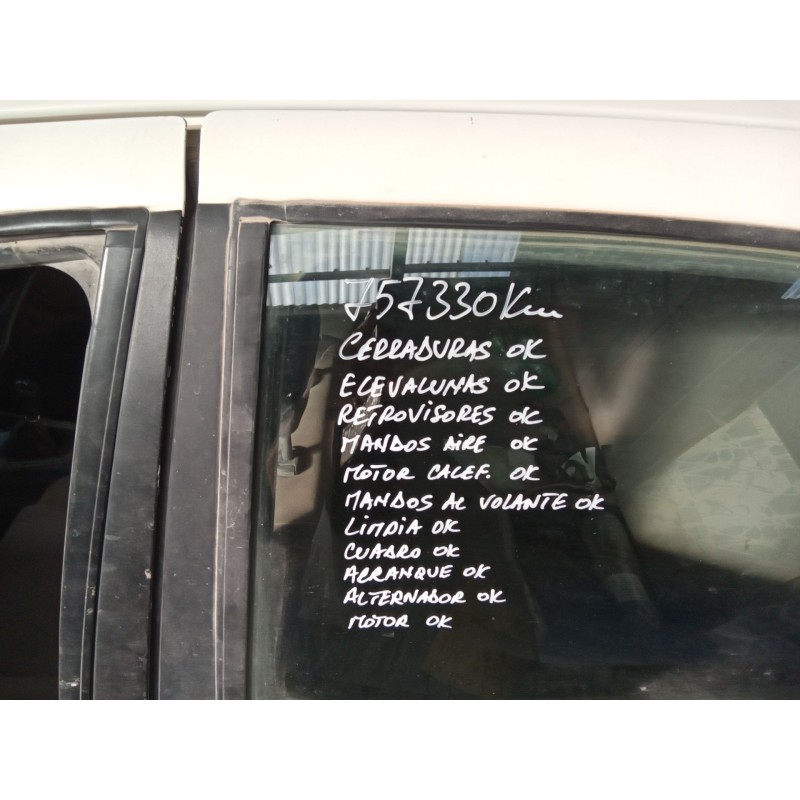 757330Km
CERRADURAS OK
ELEVALUNAS OK
RETROVISORES OK
MANDOS AIRE OK
MOTOR CALEF. OK
MANDOS AL VOLANTE OK
LIMPIA OK
CUADRO OK
ARRANQUE OK
ALTERNADOR OK
MOTOR OK